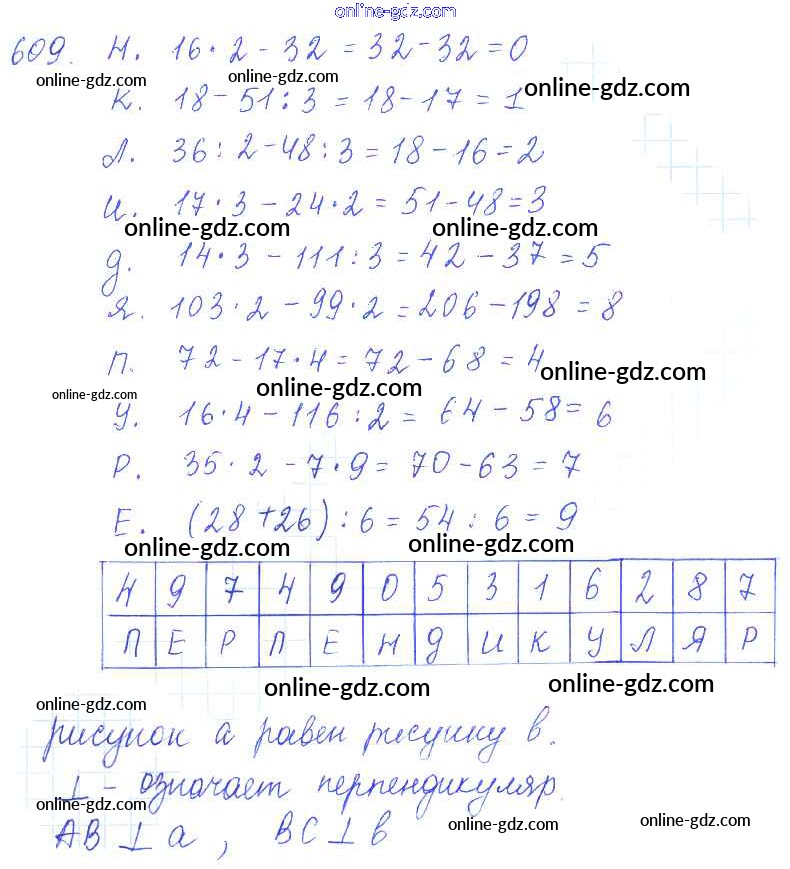 online-gdz.com
609. Н. 16·2-32=32-32=0
online-gdz.com online-gdz.com online-gdz.com
К. 18-51:3=18-17=1
Л. 36:2-48:3=18-16=2
И. 17·3-24·2=51-48=3
online-gdz.com online-gdz.com
Д. 14·3-111:3=42-37=5
Я. 103·2-99·2=206-198=8
П. 72-17·4=72-68=4
online-gdz.com online-gdz.com online-gdz.com
У. 16·4-116:2=64-58=6
Р. 35·2-7·9=70-63=7
Е. (28+26):6=54:6=9
online-gdz.com online-gdz.com
4 9 7 4 9 0 5 3 1 6 2 8 7
П Е Р П Е Н Д И К У Л Я Р
online-gdz.com online-gdz.com
online-gdz.com
рисунок а равен рисунку в.
⊥ - означает перпендикуляр.
online-gdz.com online-gdz.com online-gdz.com
АВ ⊥ а, ВС ⊥ в